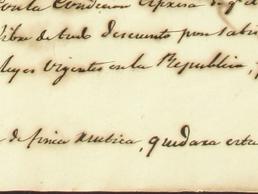 con la Condicion expresa de qe.
libre de todo descuento por
leyes vigentes en la Republica,
de finca rustica, quedara esta